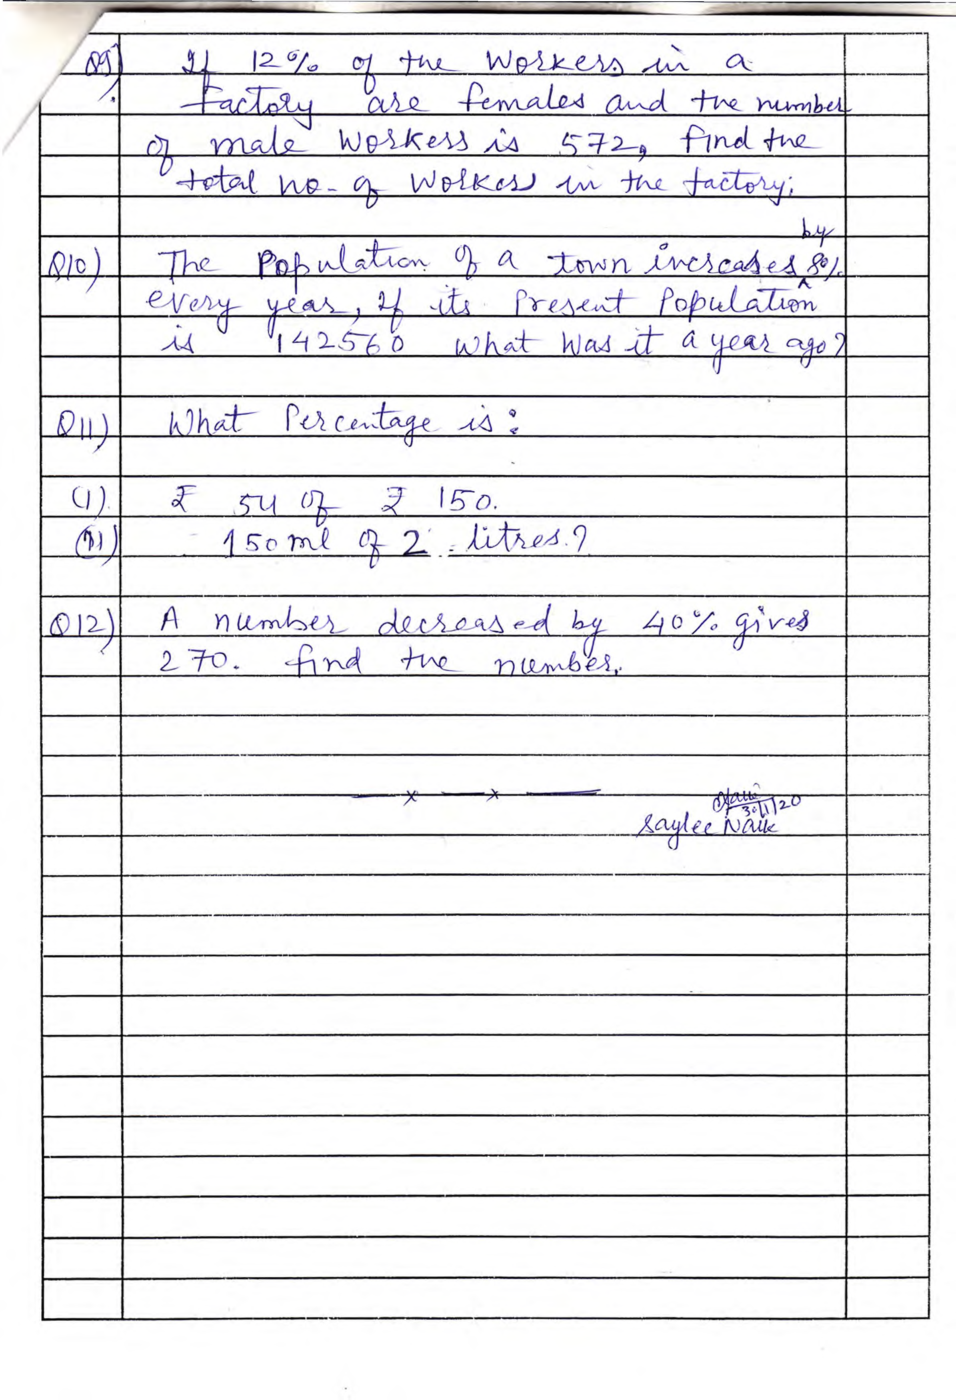 Q9) If 12% of the Workers in a
factory are females and the number
of male Workers is 572, find the
total no. of Workers in the factory.
by
Q10) The Population of a town increases ^ 8%
every year, If its Present Population
is 142560 What Was it a year ago?
Q11) What Percentage is:
(I) ₹ 54 of ₹ 150.
(II) 150ml of 2 litres.?
Q12) A number decreased by 40% gives
270. find the number.
x x
30/1/20
Saylee Naik